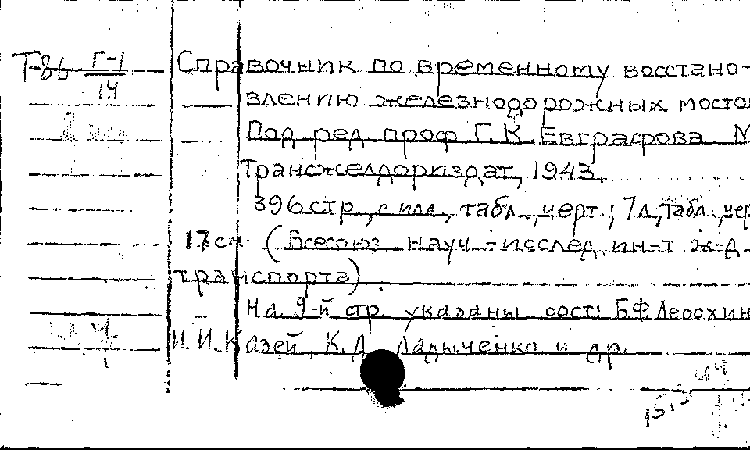 Т-86 Г-I/14 Справочник по временному восстано-
влению железнодорожных мосто
Под ред. проф. Г.К. Евграфова М
Трансжелдориздат, 1943.
396 стр., с илл., табл., черт.; 7 л., табл., чер
17 см (Всесоюз науч.-исслед. ин-т ж-д.
транспорта).
На 9-й стр. указаны сост: Б.Ф. Лесохин
И.И. Казей, К.Д. Ладыченко и др.